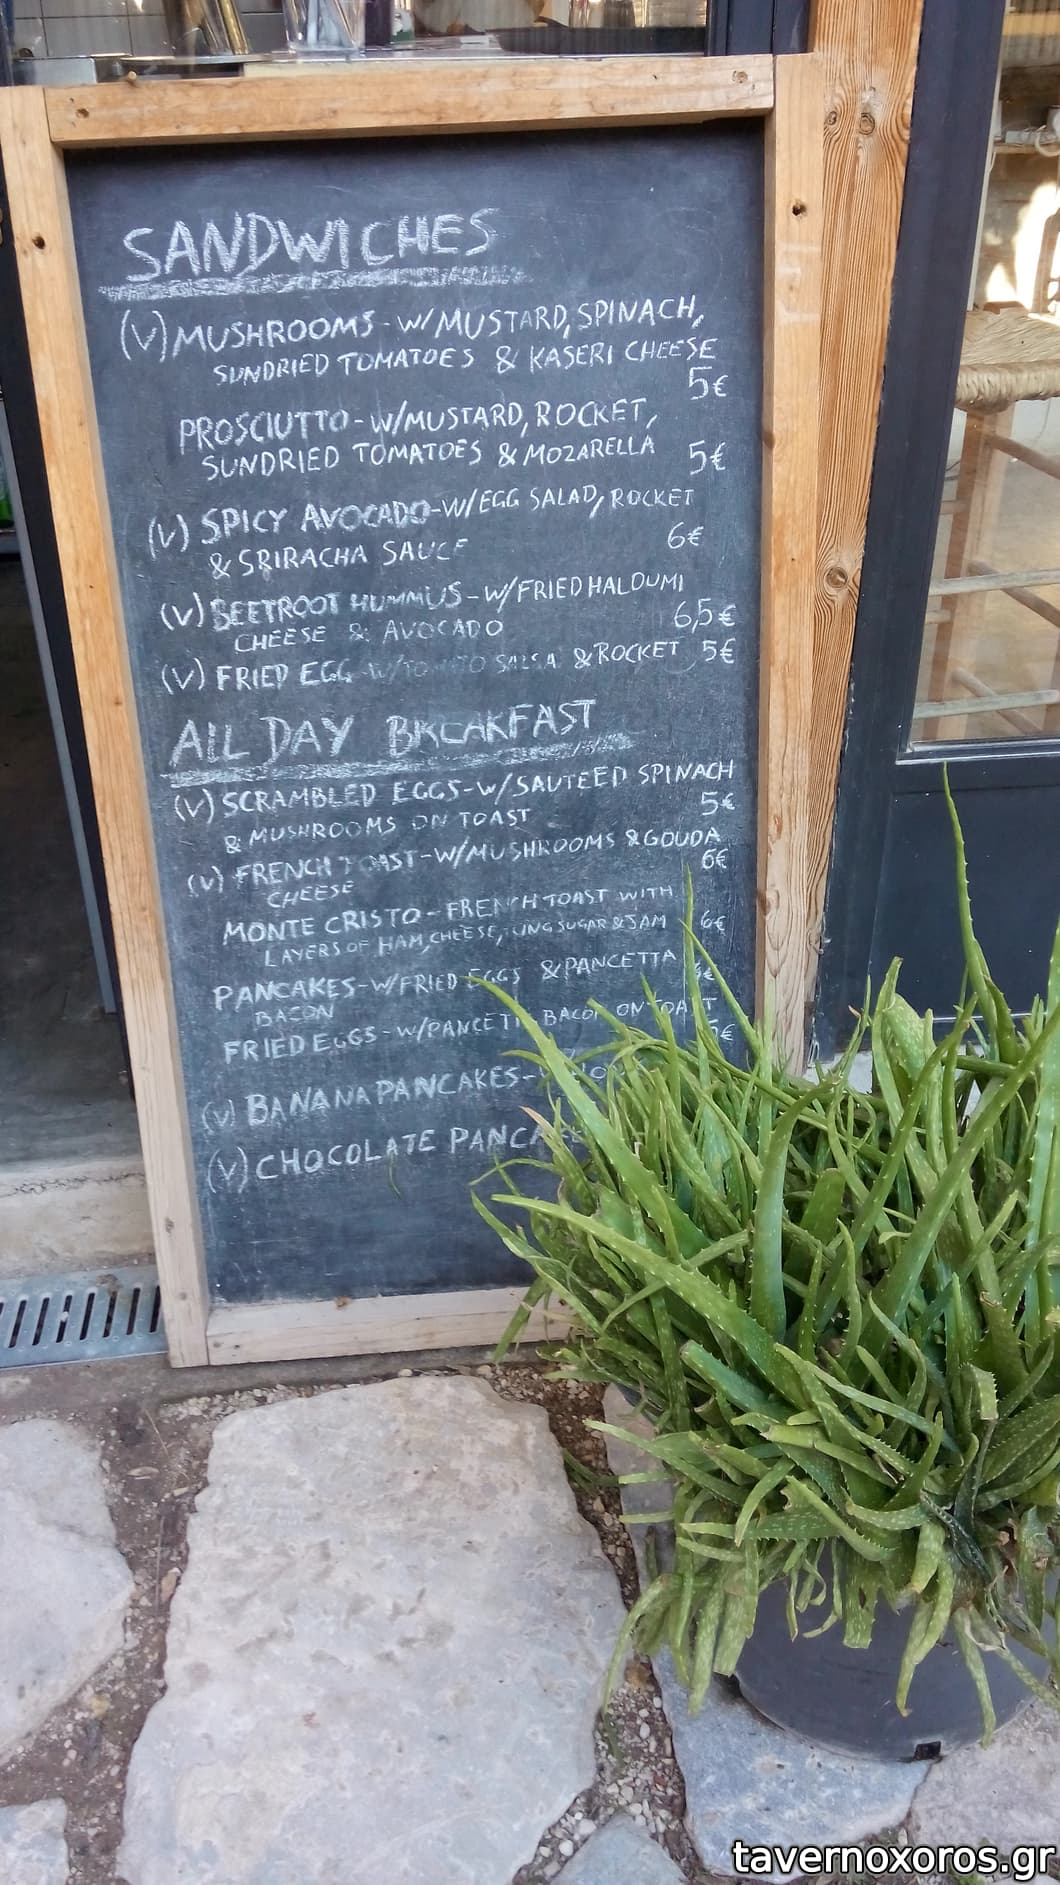 SANDWICHES
(V) MUSHROOMS - W/ MUSTARD, SPINACH,
SUNDRIED TOMATOES & KASERI CHEESE
5€
PROSCIUTTO - W/MUSTARD, ROCKET,
SUNDRIED TOMATOES & MOZARELLA 5€
(V) SPICY AVOCADO - W/EGG SALAD, ROCKET
& SRIRACHA SAUCE 6€
(V) BEETROOT HUMMUS - W/FRIED HALOUMI
CHEESE & AVOCADO 6,5€
(V) FRIED EGG - W/TOMATO SALSA & ROCKET 5€
ALL DAY BREAKFAST
(V) SCRAMBLED EGGS - W/SAUTEED SPINACH
& MUSHROOMS ON TOAST 5€
(V) FRENCH TOAST - W/MUSHROOMS & GOUDA
CHEESE 6€
MONTE CRISTO - FRENCH TOAST WITH
LAYERS OF HAM, CHEESE, ICING SUGAR & JAM 6€
PANCAKES - W/FRIED EGGS & PANCETTA
BACON
FRIED EGGS - W/PANCETTA BACON ON TOAST
5€
(V) BANANA PANCAKES -
(V) CHOCOLATE
tavernoxoros.gr